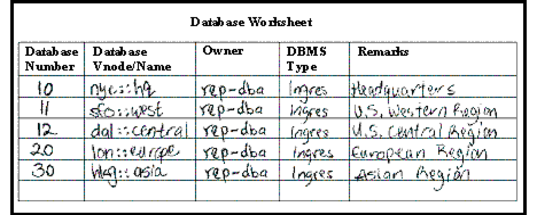 Database Worksheet
Database Number | Database Vnode/Name | Owner | DBMS Type | Remarks
10 | nyc::hq | rep-dba | Ingres | Headquarters
11 | sfo::west | rep-dba | ingres | U.S. Western Region
12 | dal::central | rep-dba | ingres | U.S. Central Region
20 | lon::europe | rep-dba | Ingres | European Region
30 | hkg::asia | rep-dba | Ingres | Asian Region